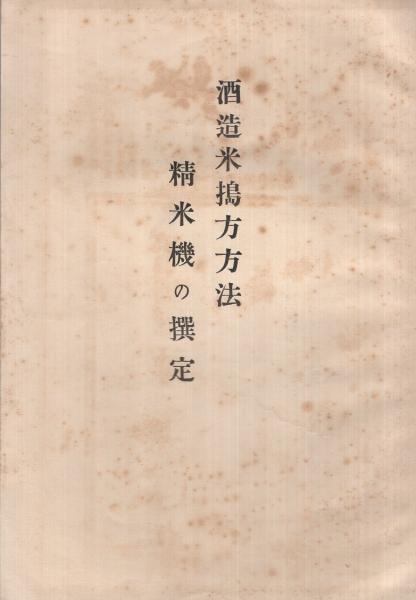 酒造米搗方方法
精米機の撰定